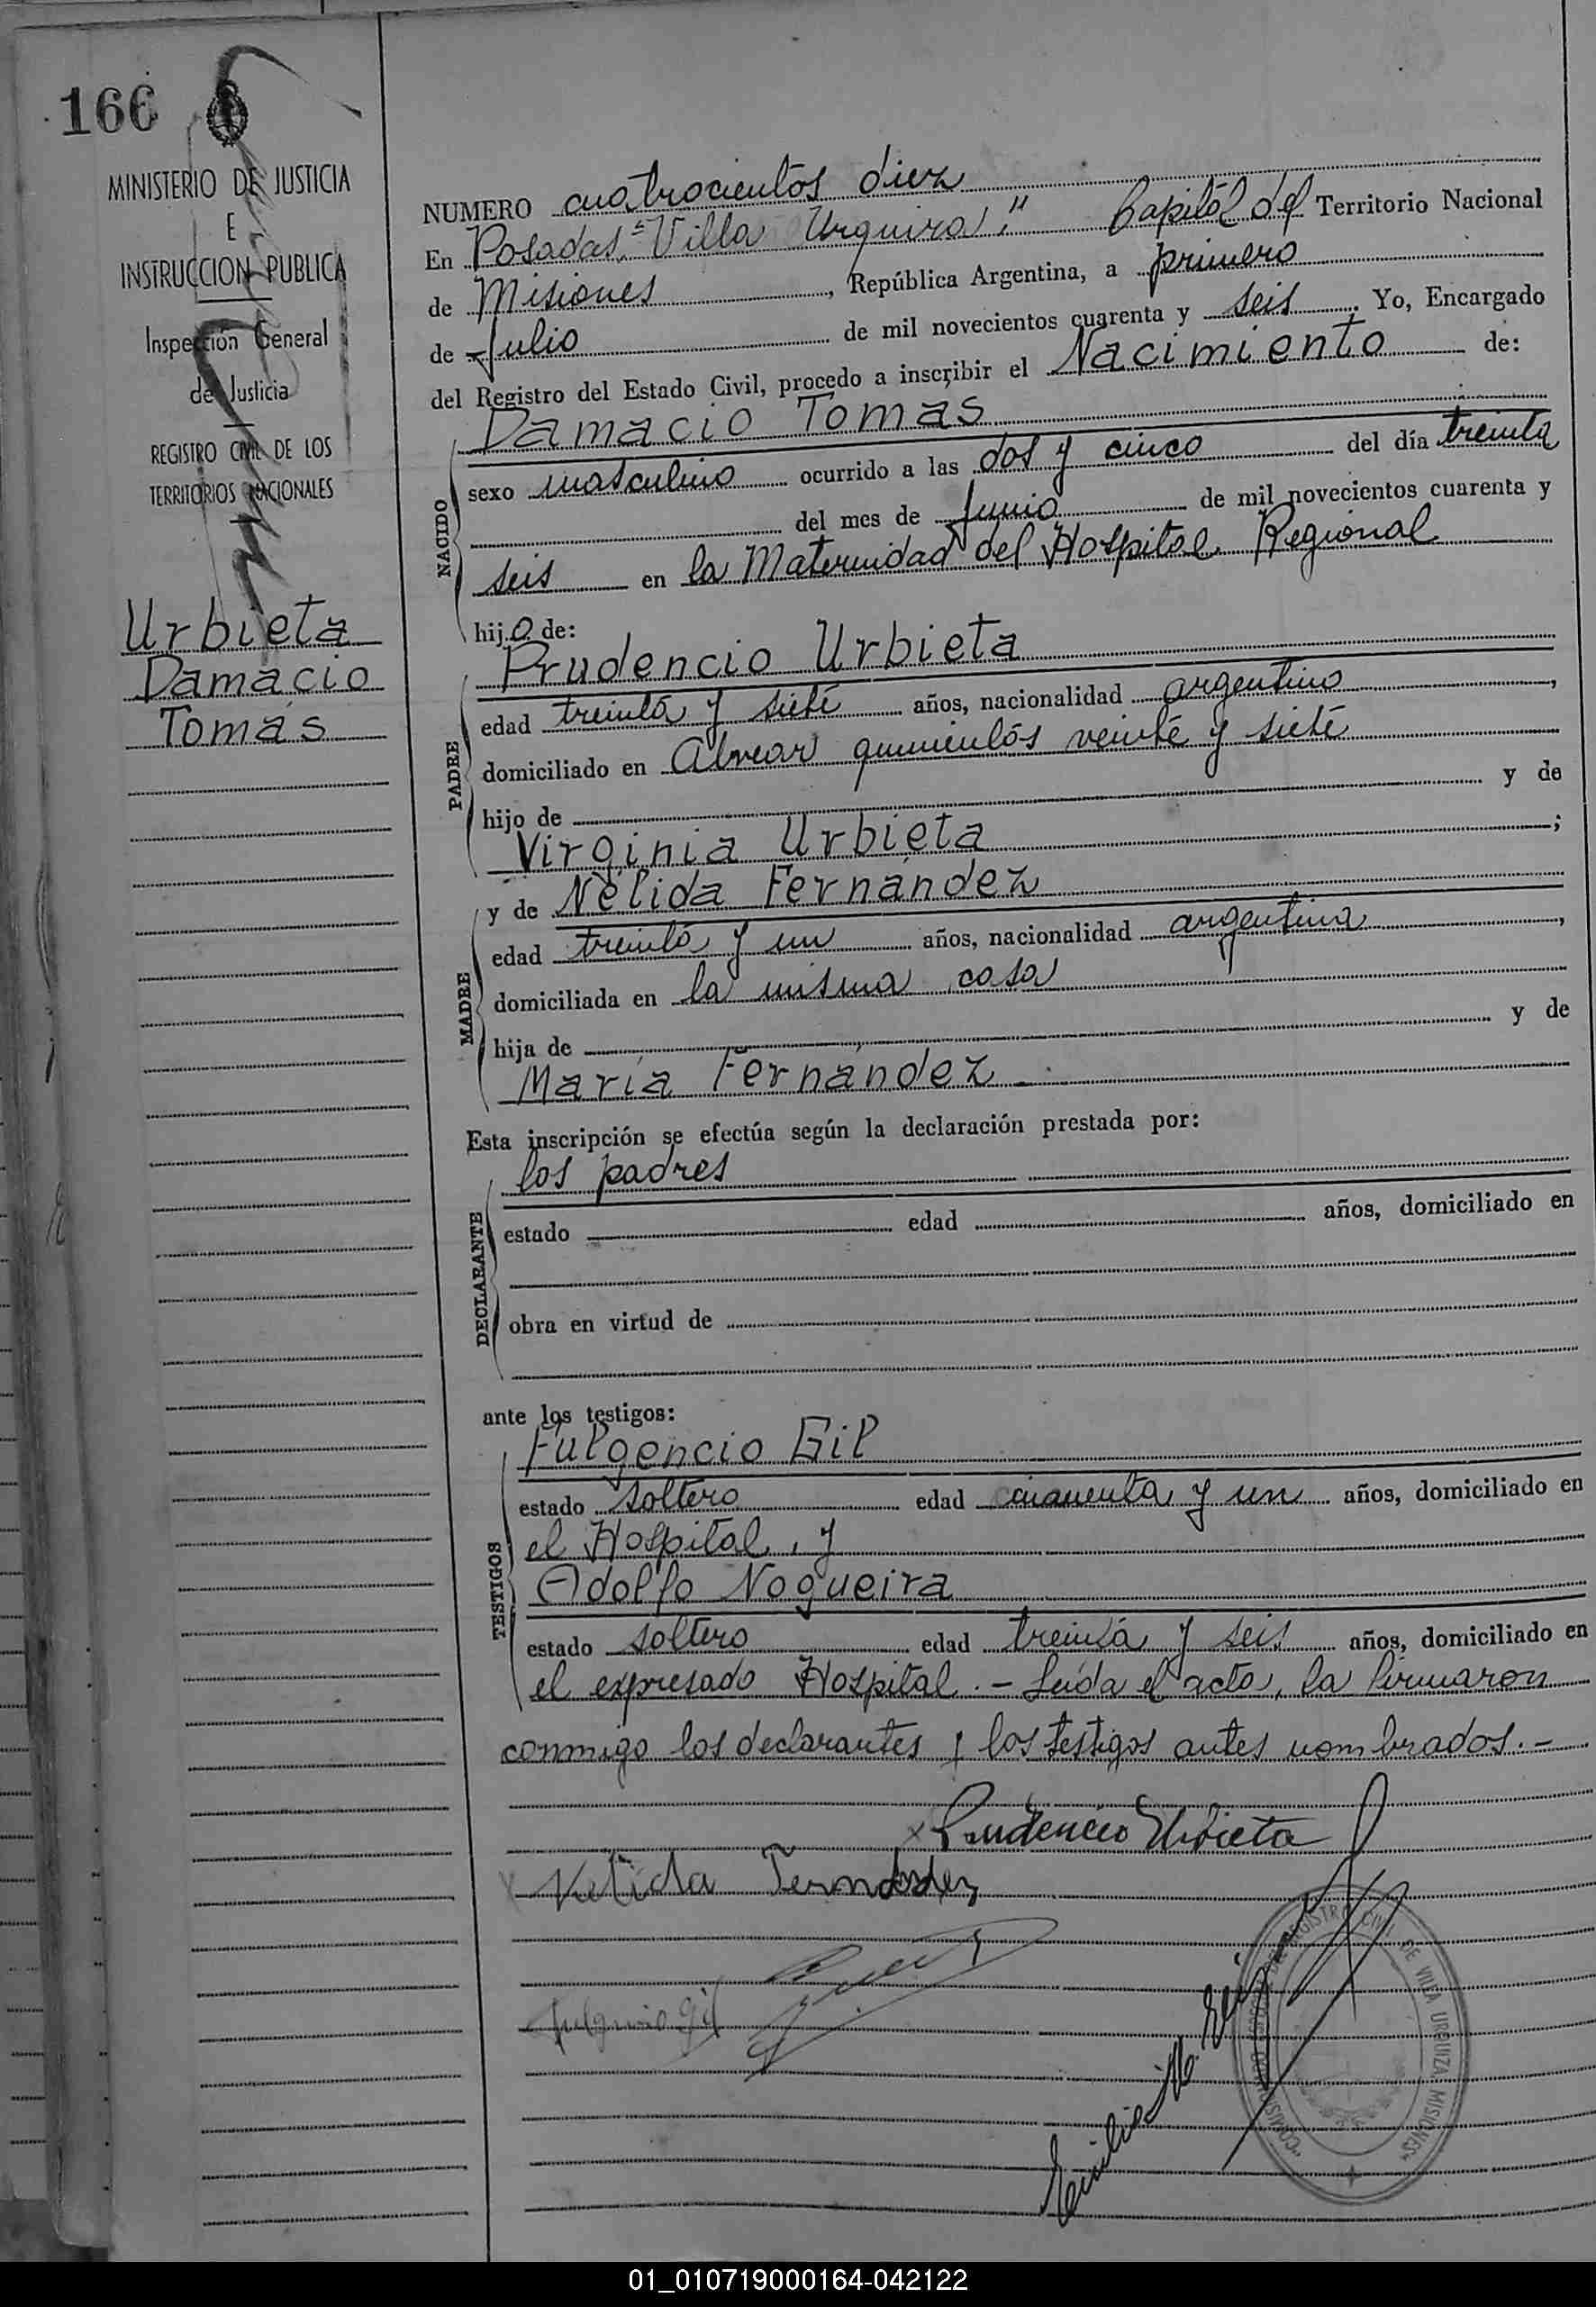 166
MINISTERIO DE JUSTICIA
E
INSTRUCCION PUBLICA
Inspección General
de Justicia
REGISTRO CIVIL DE LOS
TERRITORIOS NACIONALES
Urbieta
Damacio
Tomás
NUMERO cuatrocientos diez
En Posadas, "Villa Urquiza", Capital del Territorio Nacional
de Misiones, República Argentina, a primero
de Julio de mil novecientos cuarenta y seis. Yo, Encargado
del Registro del Estado Civil, procedo a inscribir el Nacimiento de:
NACIDO
Damacio Tomas
sexo masculino ocurrido a las dos y cinco del día treinta
del mes de Junio de mil novecientos cuarenta y
seis en la Maternidad del Hospital Regional
hijo de:
PADRE
Prudencio Urbieta
edad treinta y siete años, nacionalidad argentino,
domiciliado en Alvear quinientos veinte y siete
hijo de y de
Virginia Urbieta;
MADRE
y de Nélida Fernández
edad treinta y un años, nacionalidad argentina,
domiciliada en la misma casa
hija de y de
María Fernández
Esta inscripción se efectúa según la declaración prestada por:
DECLARANTE
los padres
estado edad años, domiciliado en
obra en virtud de
ante los testigos:
TESTIGOS
Fulgencio Gil
estado soltero edad cincuenta y un años, domiciliado en
el Hospital, y
Adolfo Nogueira
estado soltero edad treinta y seis años, domiciliado en
el expresado Hospital.- Leída el acta, la firmaron
conmigo los declarantes y los testigos antes nombrados.-
Prudencio Urbieta
Nelida Fernandez
Fulgencio Gil
Emilio M.
REGISTRO CIVIL DE VILLA URQUIZA MISIONES
01_010719000164-042122